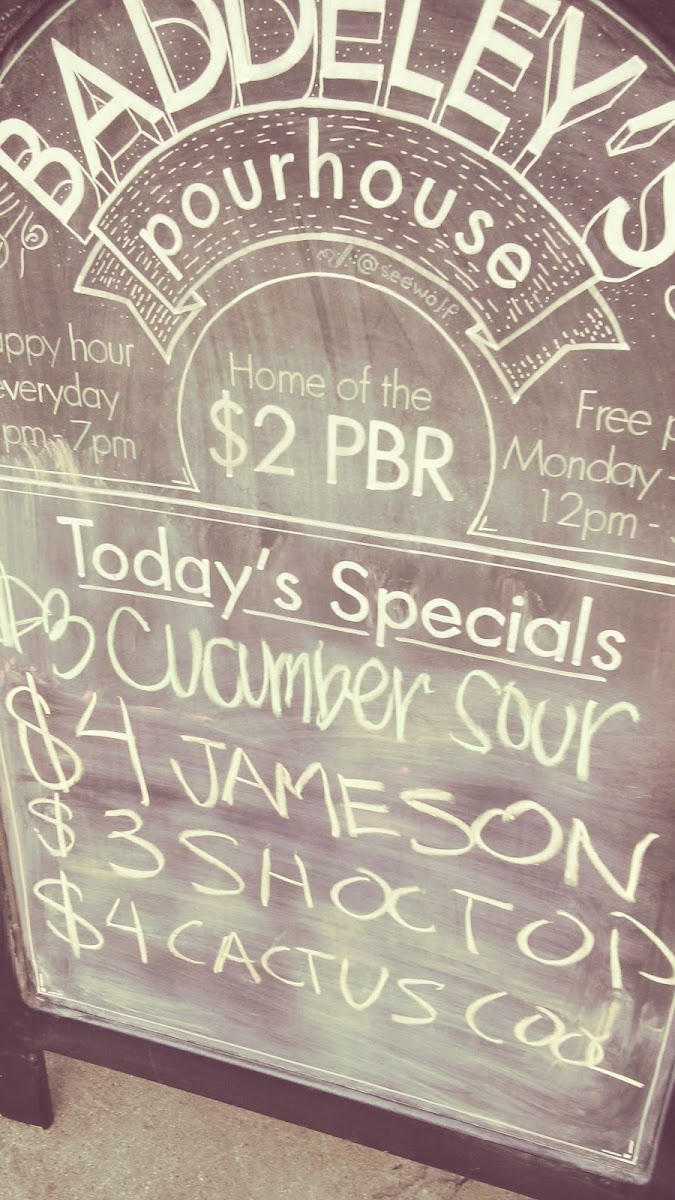 BADDELEY'S
pourhouse
@seewolf
Home of the
$2 PBR
appy hour
everyday
pm - 7pm
Free p
Monday -
12pm -
Today's Specials
$3 Cucumber Sour
$4 JAMESON
$3 SHOCTOP
$4 CACTUS COOL